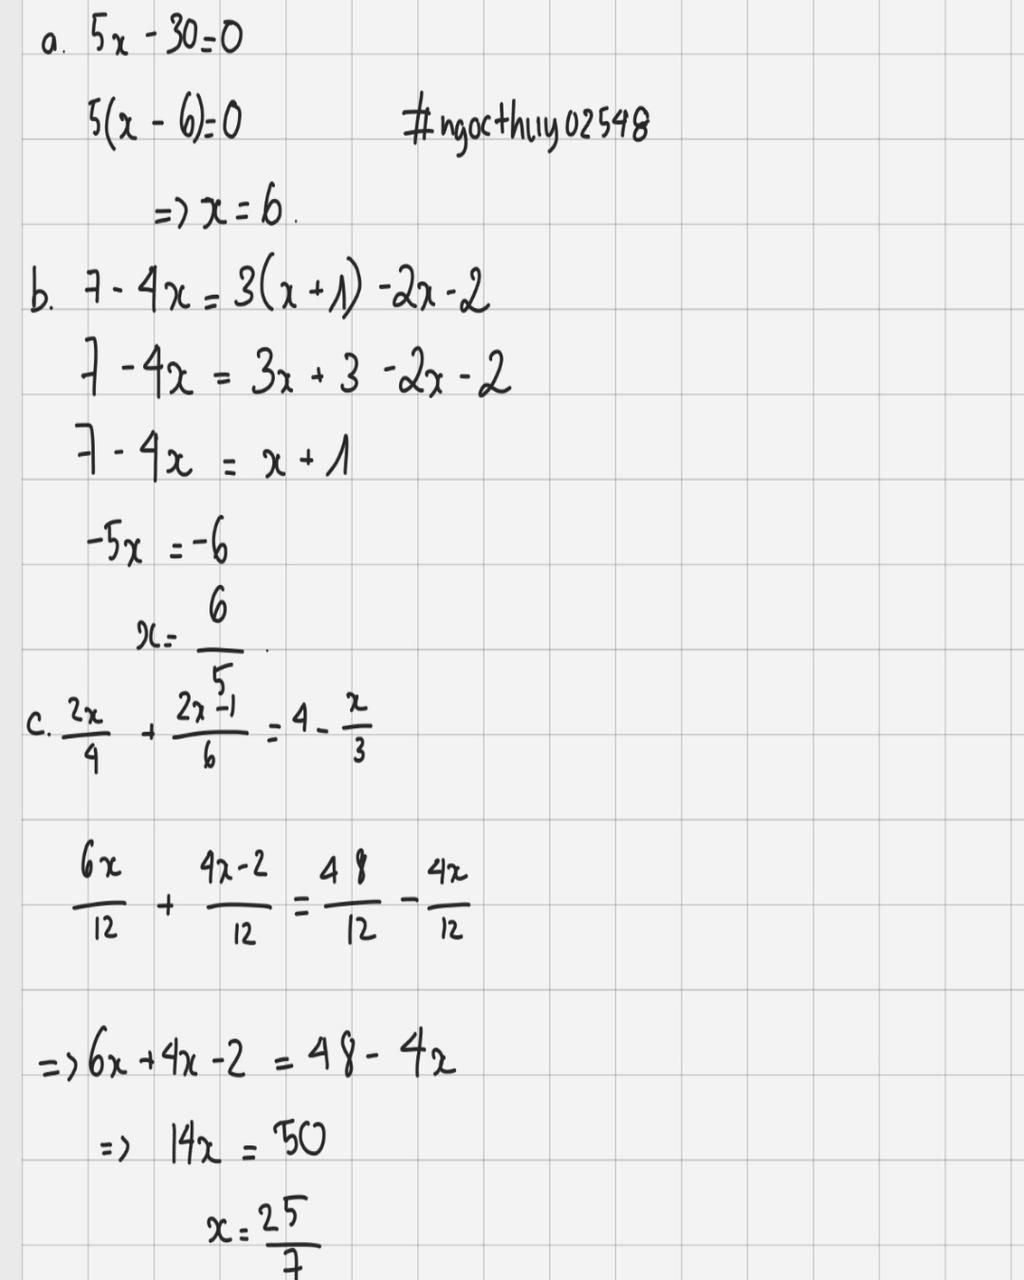 a. 5x - 30=0
5(x - 6)=0 #ngocthuy02548
=> x = 6.
b. 7 - 4x = 3(x + 1) -2x - 2
7 - 4x = 3x + 3 -2x - 2
7 - 4x = x + 1
-5x = -6
x = 6/5.
c. 2x/4 + (2x-1)/6 = 4 - x/3
6x/12 + (4x-2)/12 = 48/12 - 4x/12
=> 6x + 4x - 2 = 48 - 4x
=> 14x = 50
x = 25/7